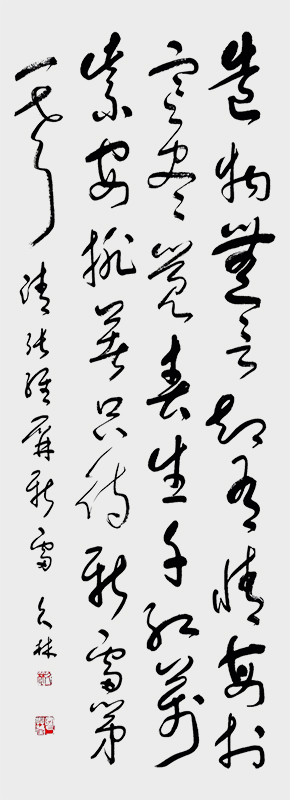 造物無言却有情每於
寒盡覺春生千紅萬
紫安排著只待新雷第
一聲 清張維屏新雷 久林